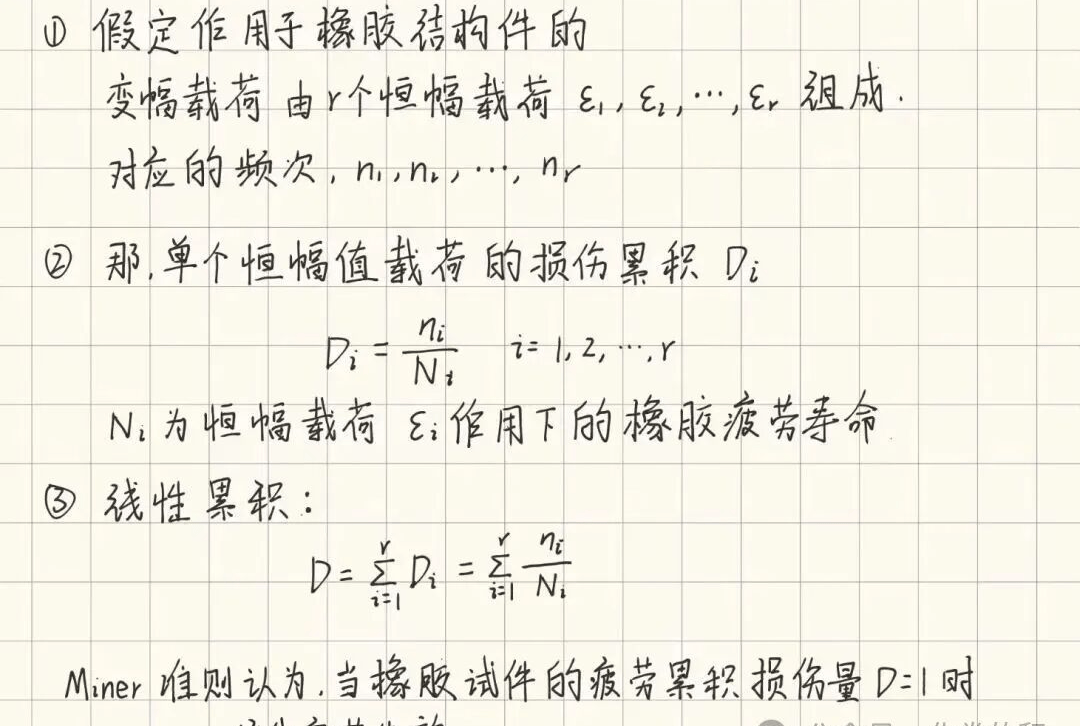 ① 假定作用于橡胶结构件的
变幅载荷由r个恒幅载荷 ε₁, ε₂, …, εᵣ 组成.
对应的频次, n₁, n₂, …, nᵣ
② 那,单个恒幅值载荷的损伤累积 Dᵢ
Dᵢ = nᵢ/Nᵢ i = 1, 2, …, r
Nᵢ 为恒幅载荷 εᵢ 作用下的橡胶疲劳寿命
③ 线性累积:
D = ∑ᵢ₌₁ʳ Dᵢ = ∑ᵢ₌₁ʳ nᵢ/Nᵢ
Miner 准则认为,当橡胶试件的疲劳累积损伤量 D=1 时